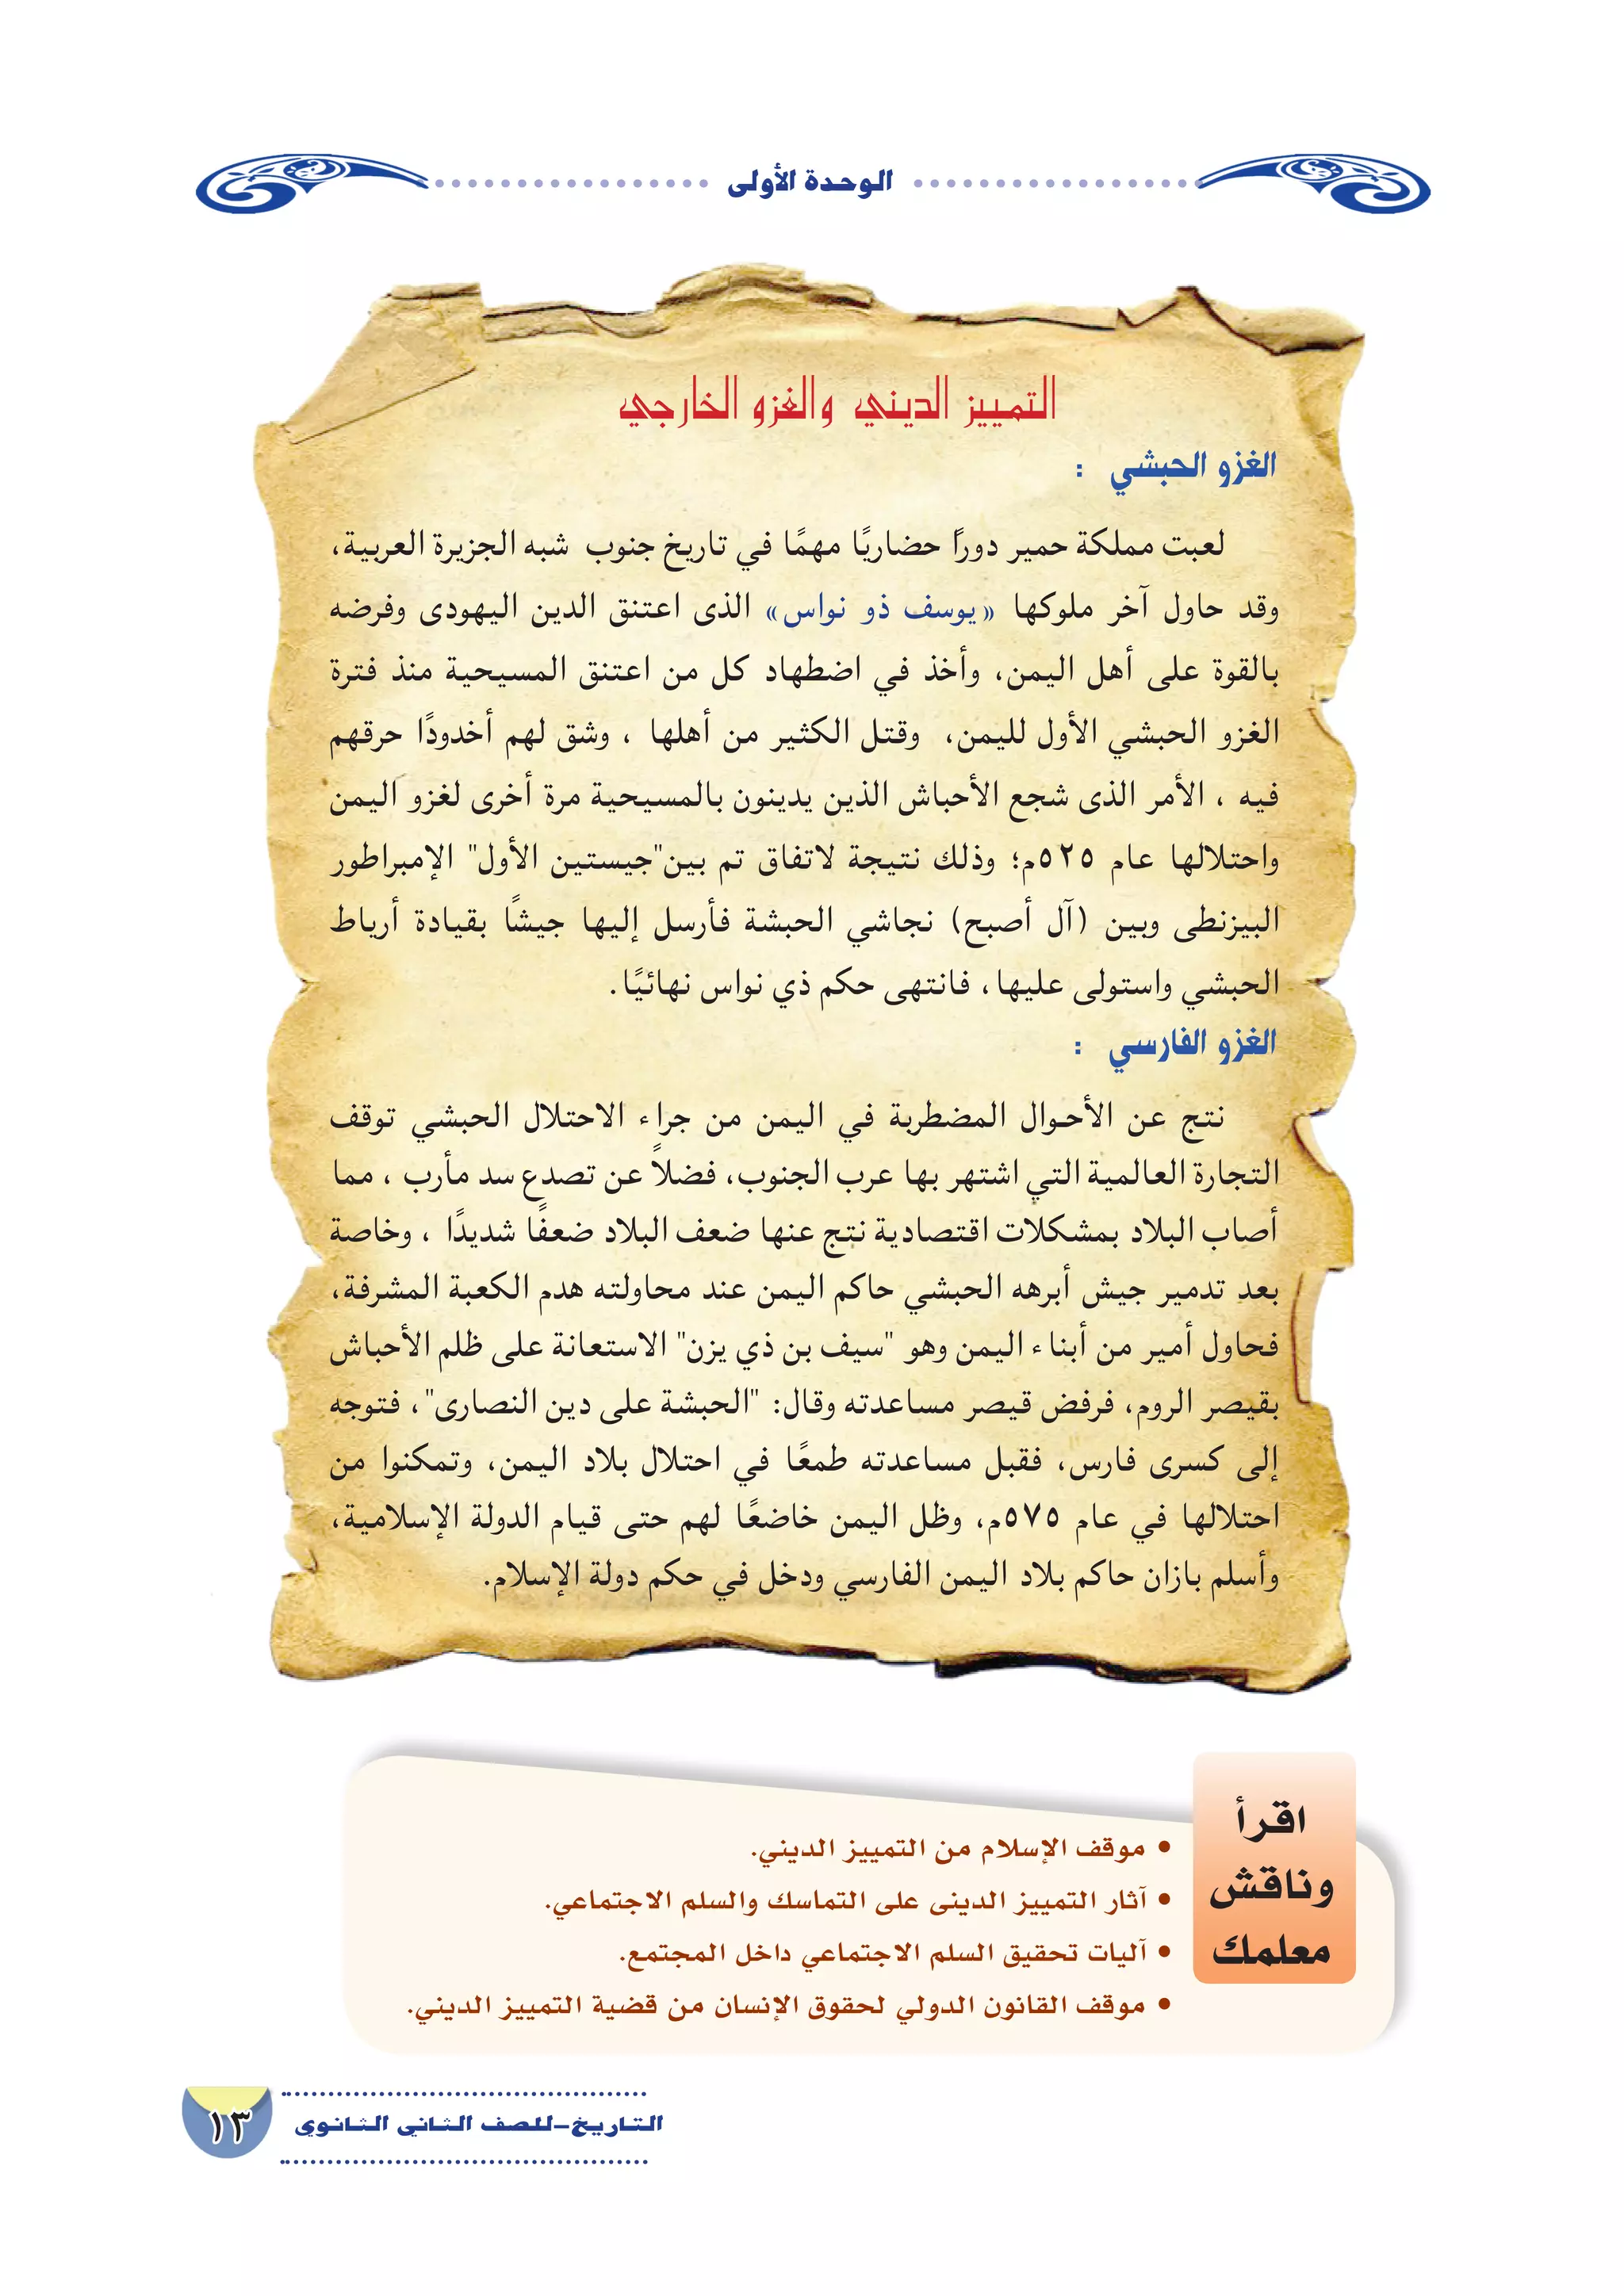 الوحدة الأولى
التمييز الديني والغزو الخارجي
الغزو الحبشي :
لعبت مملكة حمير دورًا حضاريًا مهمًا في تاريخ جنوب شبه الجزيرة العربية،
وقد حاول آخر ملوكها «يوسف ذو نواس» الذى اعتنق الدين اليهودى وفرضه
بالقوة على أهل اليمن، وأخذ في اضطهاد كل من اعتنق المسيحية منذ فترة
الغزو الحبشي الأول لليمن، وقتل الكثير من أهلها ، وشق لهم أخدودًا حرقهم
فيه ، الأمر الذى شجع الأحباش الذين يدينون بالمسيحية مرة أخرى لغزو اليمن
واحتلالها عام ٥٢٥م؛ وذلك نتيجة لاتفاق تم بين"جيستين الأول" الإمبراطور
البيزنطى وبين (آل أصبح) نجاشي الحبشة فأرسل إليها جيشًا بقيادة أرياط
الحبشي واستولى عليها، فانتهى حكم ذي نواس نهائيًا.
الغزو الفارسي :
نتج عن الأحوال المضطربة في اليمن من جراء الاحتلال الحبشي توقف
التجارة العالمية التي اشتهر بها عرب الجنوب، فضلاً عن تصدع سد مأرب ، مما
أصاب البلاد بمشكلات اقتصادية نتج عنها ضعف البلاد ضعفًا شديدًا ، وخاصة
بعد تدمير جيش أبرهه الحبشي حاكم اليمن عند محاولته هدم الكعبة المشرفة،
فحاول أمير من أبناء اليمن وهو "سيف بن ذي يزن" الاستعانة على ظلم الأحباش
بقيصر الروم، فرفض قيصر مساعدته وقال: "الحبشة على دين النصارى"، فتوجه
إلى كسرى فارس، فقبل مساعدته طمعًا في احتلال بلاد اليمن، وتمكنوا من
احتلالها في عام ٥٧٥م، وظل اليمن خاضعًا لهم حتى قيام الدولة الإسلامية،
وأسلم بازان حاكم بلاد اليمن الفارسي ودخل في حكم دولة الإسلام.
اقرأ
وناقش
معلمك
• موقف الإسلام من التمييز الديني.
• آثار التمييز الدينى على التماسك والسلم الاجتماعي.
• آليات تحقيق السلم الاجتماعي داخل المجتمع.
• موقف القانون الدولي لحقوق الإنسان من قضية التمييز الديني.
التاريخ-للصف الثانى الثانوى
١٣